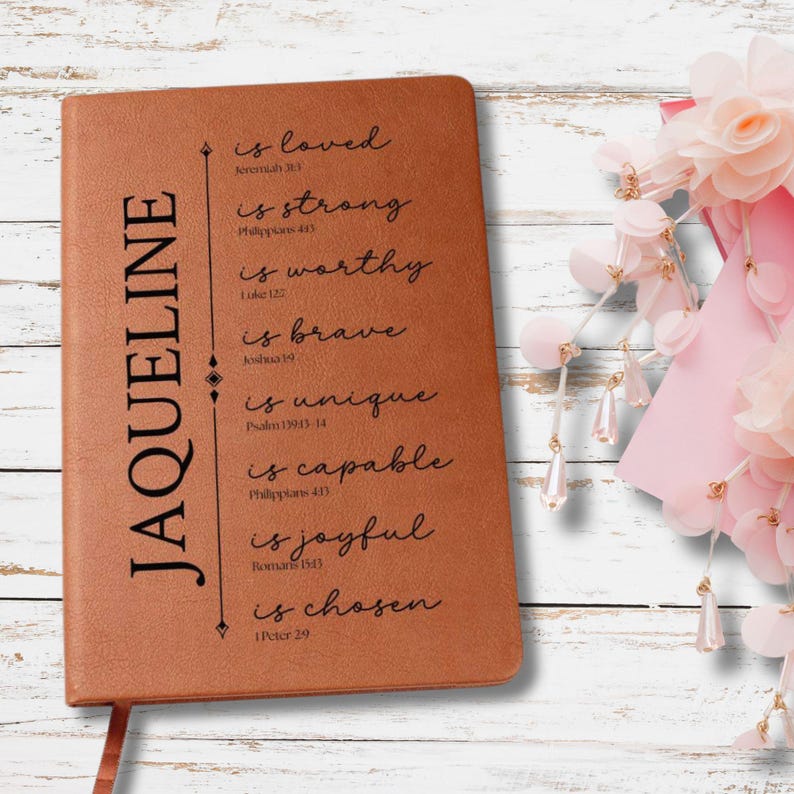 JAQUELINE
is loved
Jeremiah 31:3
is strong
Philippians 4:13
is worthy
Luke 12:7
is brave
Joshua 1:9
is unique
Psalm 139:13-14
is capable
Philippians 4:13
is joyful
Romans 15:13
is chosen
1 Peter 2:9